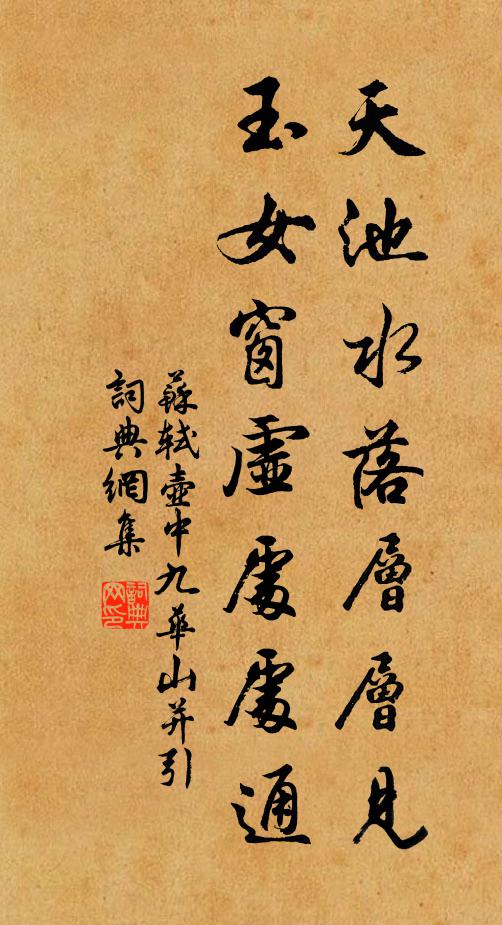 天池水落層層見
玉女窗虛處處通
蘇軾壺中九華山并引
詞典網集
詞典
网印